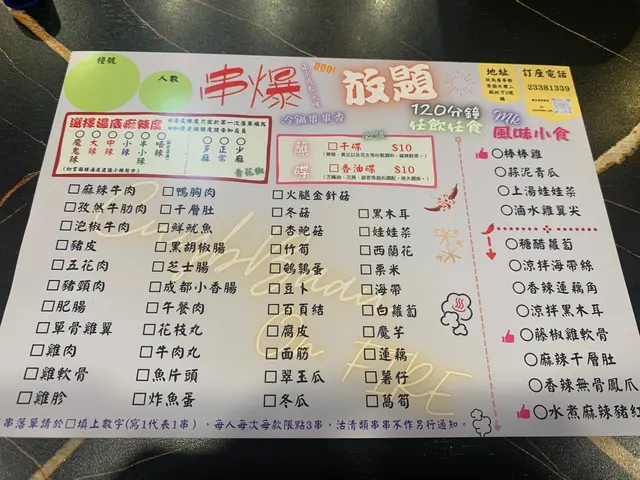 檯號
人數
串爆
放題
GO!
冷鍋串串香
120分鐘
任飲任食
地址
訂座電話
23381339
風味小食
選擇湯底麻辣度
魔鬼辣
大辣
中辣
小辣
半小辣
唔辣
多麻
正常
少麻
青花椒
必試
蘸碟
□干碟 $10
□香油碟 $10
□麻辣牛肉
□孜然牛肋肉
□泡椒牛肉
□豬皮
□五花肉
□豬頸肉
□肥腸
□單骨雞翼
□雞肉
□雞軟骨
□雞胗
□鴨胸肉
□千層肚
□鮮魷魚
□黑胡椒腸
□芝士腸
□成都小香腸
□午餐肉
□花枝丸
□牛肉丸
□魚片頭
□炸魚蛋
□火腿金針菇
□冬菇
□杏鮑菇
□竹筍
□鵪鶉蛋
□豆卜
□百頁結
□腐皮
□面筋
□翠玉瓜
□冬瓜
□黑木耳
□娃娃菜
□西蘭花
□粟米
□海帶
□白蘿蔔
□魔芋
□蓮藕
□薯仔
□萵筍
○棒棒雞
○蒜泥青瓜
○上湯娃娃菜
○滷水雞翼尖
○糖醋蘿蔔
○涼拌海帶絲
○香辣蓮藕角
○涼拌黑木耳
○藤椒雞軟骨
○麻辣千層肚
○香辣無骨鳳爪
○水煮麻辣豬紅
串落單請於□填上數字(寫1代表1串)，每人每次每款限點3串，沽清類串串不作另行通知。